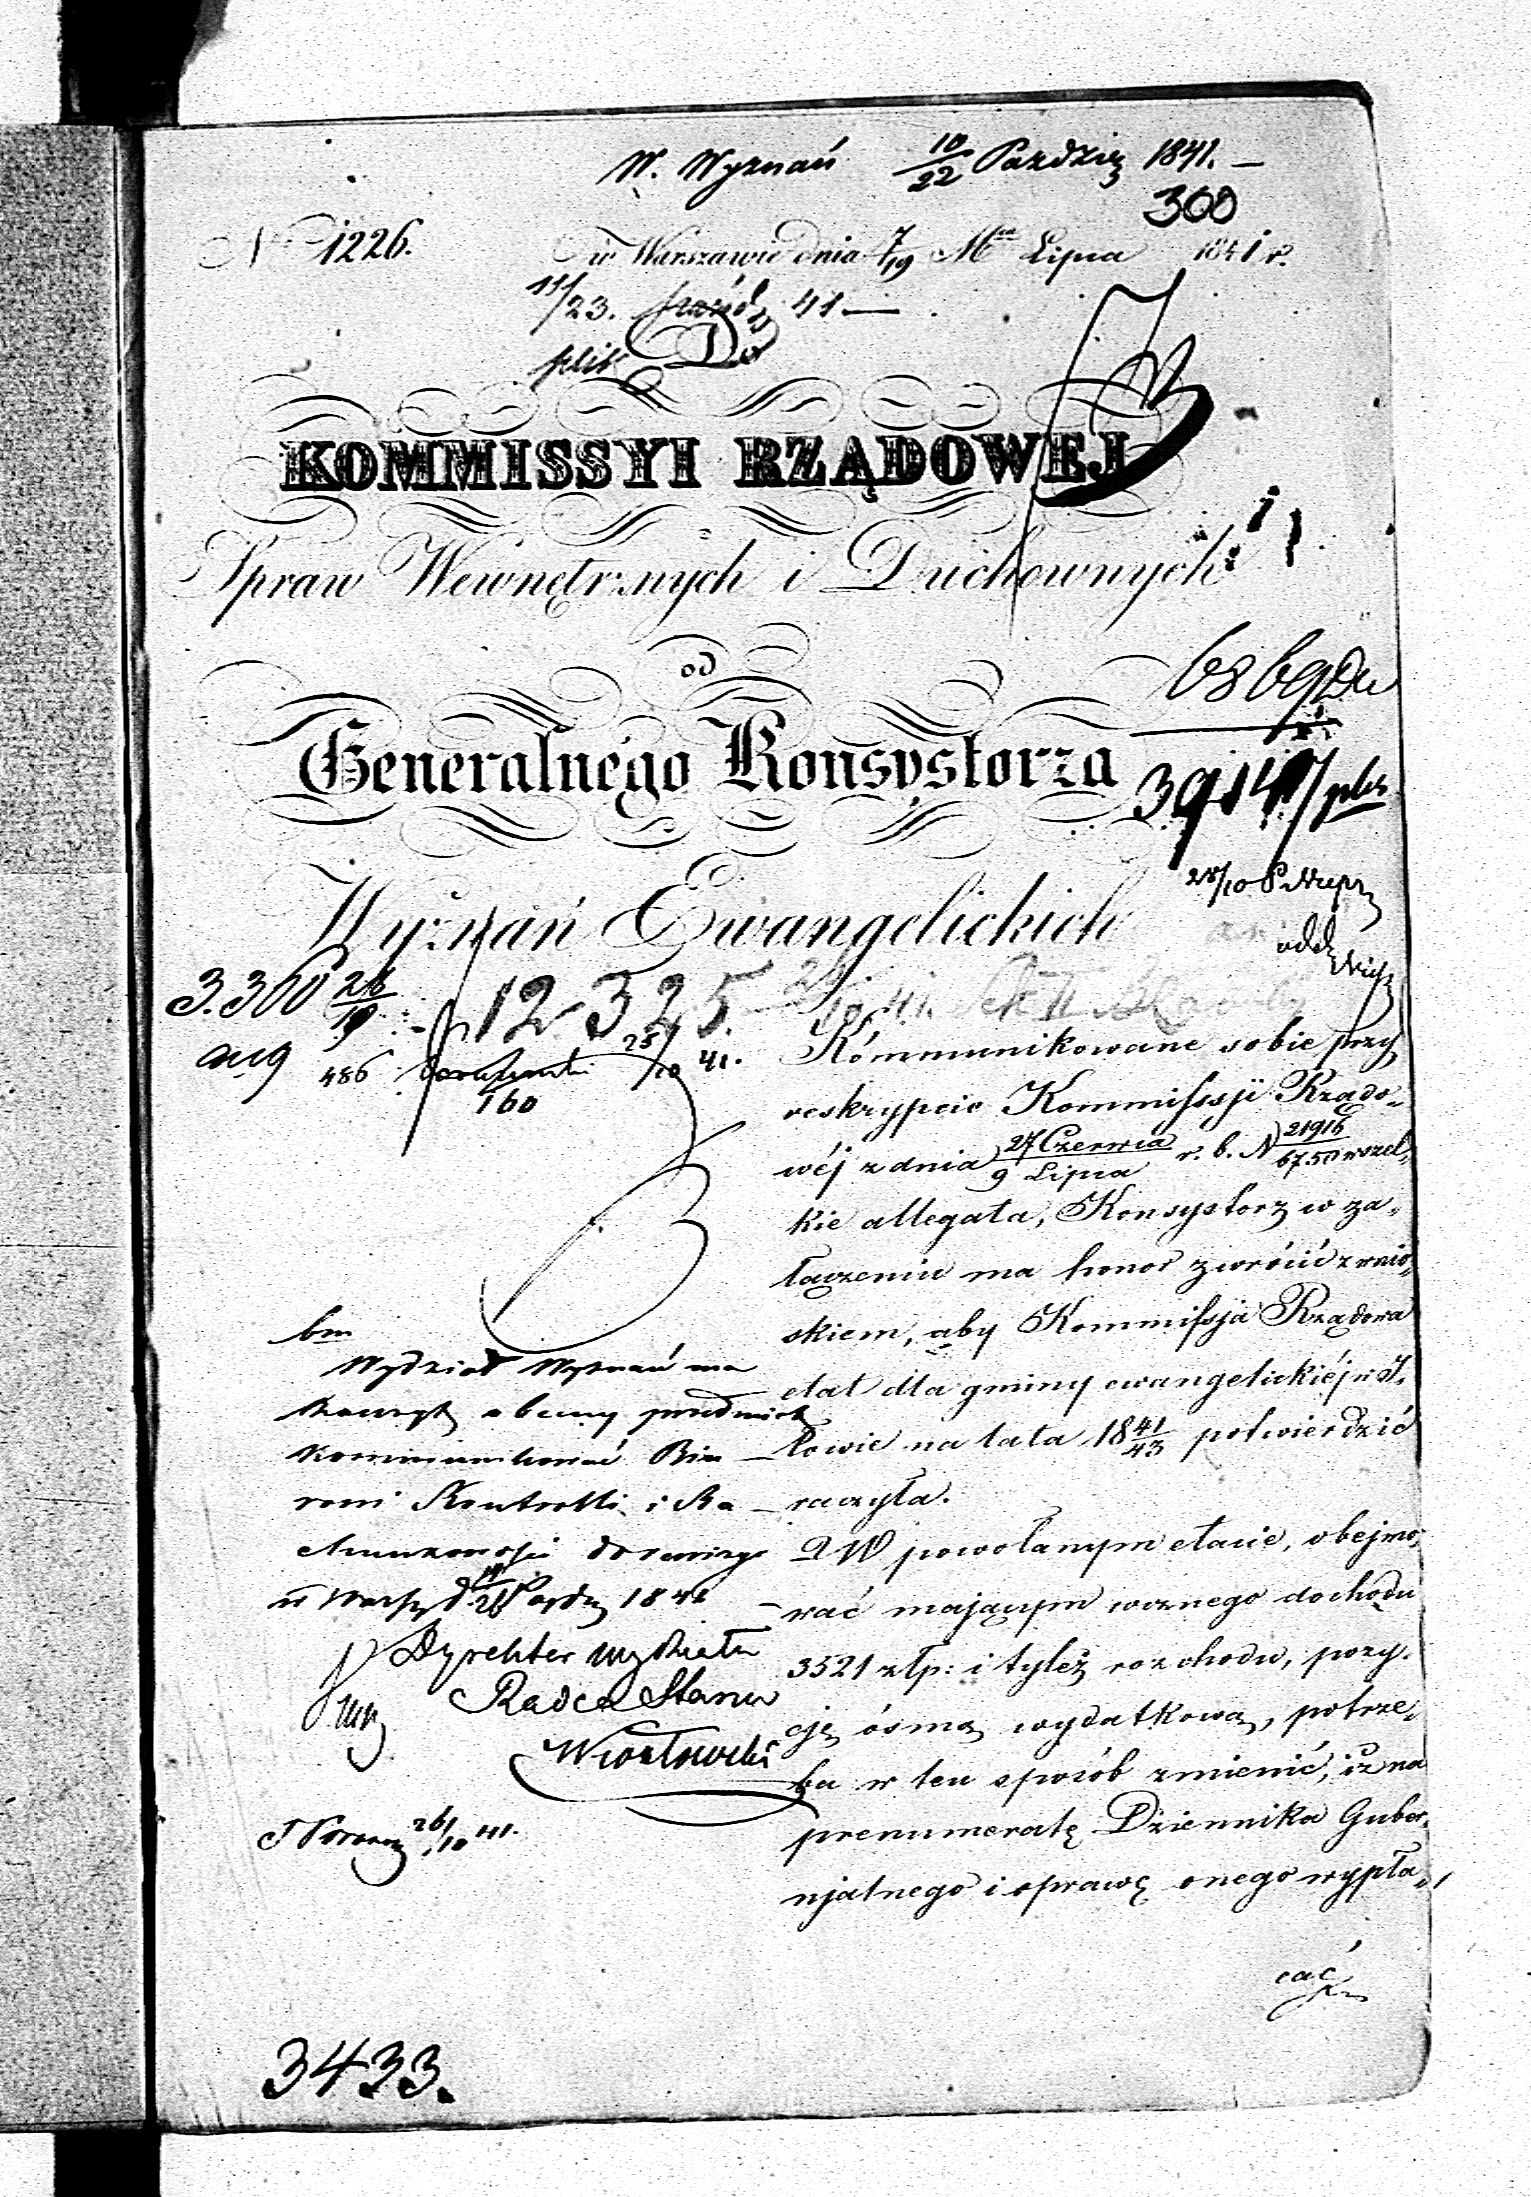 W. Wyznań 10/22 Paździer 1841. —
300
No 1226.
w Warszawie dnia 7/19 Mca Lipca 1841 r.
11/23. 41 —
Do
KOMMISSYI RZĄDOWEJ
Spraw Wewnętrznych i Duchownych
od
Generalnego Konsystorza
Wyznań Ewangelickich
28/10
3.300 26/10
12325.
486 25/10 41.
160
Kommunikowane sobie przy
reskrypcie Kommissyi Rządo„
wéj z dnia 27 Czerwca/9 Lipca r. b. N wszel„
kie allegata, Konsystorz w za„
łączeniu ma honor zwrócić z wnio„
skiem, aby Kommissja Rządowa
etat dla gminy ewangelickiéj w I„
łowie na lata 18 41/43 potwierdzić
raczyła.
W powołanym etacie, obejmo„
wać mającym rocznego dochodu
3521 złp: i tyleż rozchodu, pozy„
cję ósmą wydatkową, potrze„
ba w ten sposób zmienić, iż na
prenumeratę Dziennika Guber„
njalnego i oprawę onego wypła„
cać
Wydział Wyznań ma
zaszczyt obecny przedmiot
kommunikować Biu —
rowi Kontrolli i Ra —
chunkowości do rewizyi
w Warsz. d. 14/26 Paźdz 1841 —
Dyrektor Wydziału
Radca Stanu
26/10 41.
3433.